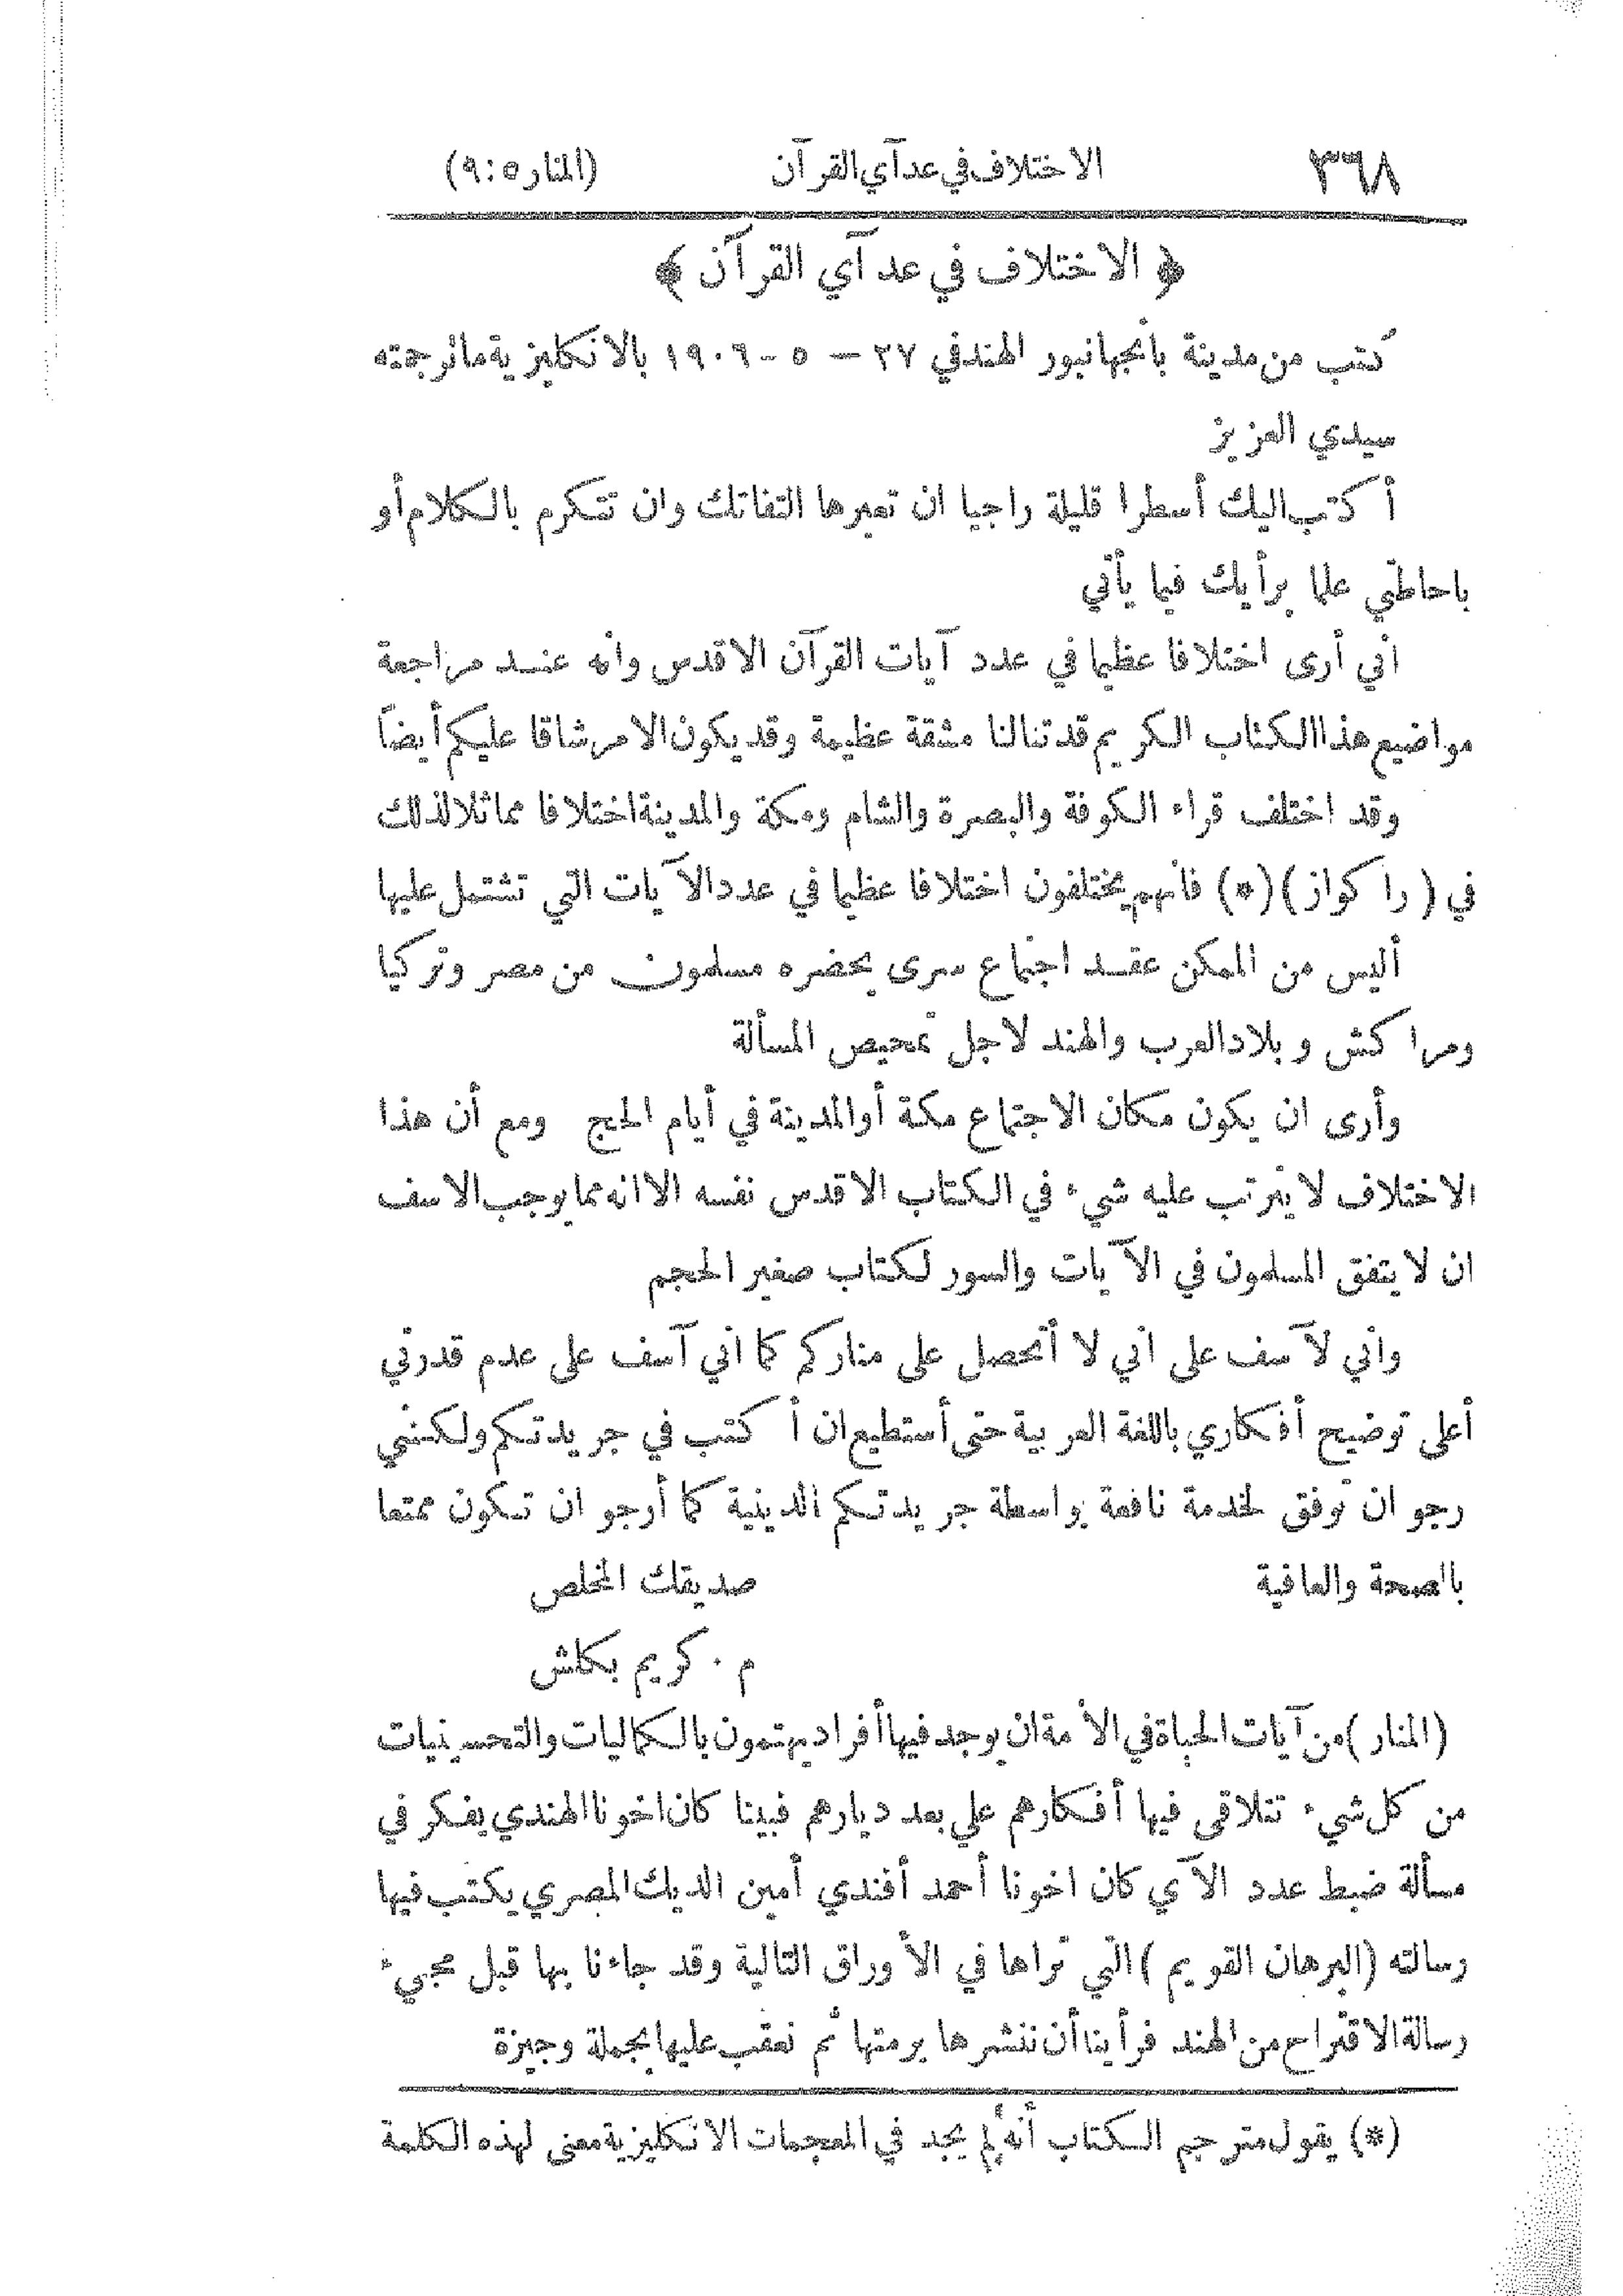 ٣٦٨ الاختلاف في عد آي القرآن (المنار ٥ : ٩)
﴿ الاختلاف في عد آي القرآن ﴾
كتب من مدينة بانجهانبور الهند في ٢٧ — ٥ - ١٩٠٦ بالانكليزية ما ترجمته
سيدي العزيز
أكتب اليك أسطرا قليلة راجيا ان تعيرها التفاتك وان تتكرم بالكلام أو
باحاطتي علما برأيك فيما يأتي
اني أرى اختلافا عظيما في عدد آيات القرآن الاقدس وانه عند مراجعة
مواضيع هذا الكتاب الكريم قد تنالنا مشقة عظيمة وقد يكون الامر شاقا عليكم أيضاً
وقد اختلف قراء الكوفة والبصرة والشام ومكة والمدينة اختلافا مماثلا لذلك
في ( راكواز ) (*) فانهم يختلفون اختلافا عظيما في عدد الآيات التي تشتمل عليها
أليس من الممكن عقد اجتماع سري يحضره مسلمون من مصر وتركيا
ومراكش وبلاد العرب والهند لاجل تمحيص المسألة
وأرى ان يكون مكان الاجتماع مكة أو المدينة في أيام الحج ومع أن هذا
الاختلاف لا يترتب عليه شيء في الكتاب الاقدس نفسه الا انه مما يوجب الاسف
ان لا يتفق المسلمون في الآيات والسور لكتاب صغير الحجم
واني لآسف على اني لا أتحصل على مناركم كما اني آسف على عدم قدرتي
أعلى توضيح أفكاري باللغة العربية حتى أستطيع ان أكتب في جريدتكم ولكنني
رجو ان توفق لخدمة نافعة بواسطة جريدتكم الدينية كما أرجو ان تكون ممتعا
بالصحة والعافية صديقك المخلص
م . كريم بكاش
( المنار ) من آيات الحياة في الأمة ان يوجد فيها أفراد يهتمون بالكماليات والتحسينيات
من كل شيء تتلاقى فيها أفكارهم على بعد ديارهم فبينا كان اخونا الهندي يفكر في
مسألة ضبط عدد الآي كان اخونا أحمد أفندي أمين الديك المصري يكتب فيها
رسالته ( البرهان القويم ) التي تراها في الأوراق التالية وقد جاءنا بها قبل مجيء
رسالة الاقتراح من الهند فرأينا أن ننشرها برمتها ثم نعقب عليها بجملة وجيزة
(*) يقول مترجم الكتاب أنه لم يجد في المعجمات الانكليزية معنى لهذه الكلمة